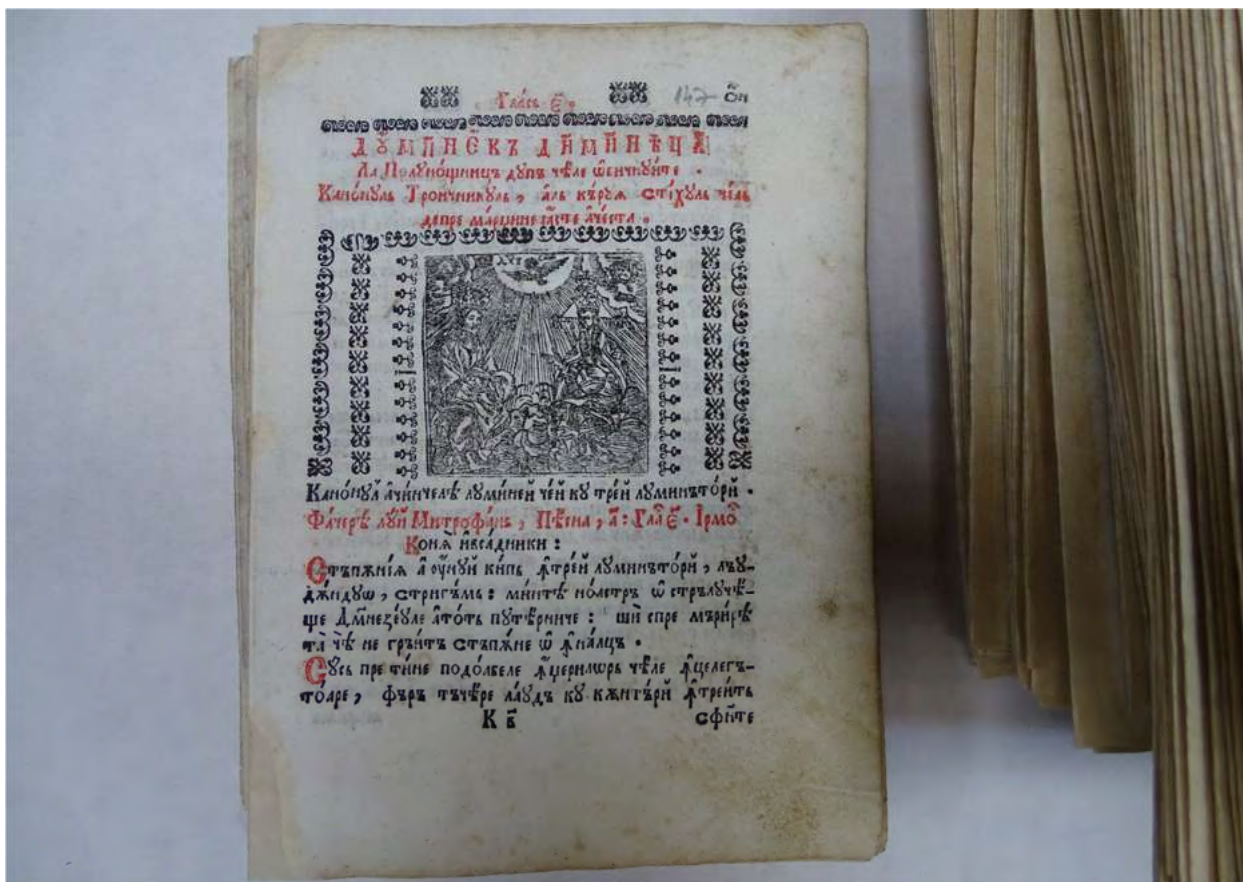 Гла́съ є҃. 147 о҃и
ДꙊМИ́НЕКЪ ДИ́МИНѢЦА
Ла Полꙋно́щницъ дꙋпъ чѣле ѡ҆бичнꙋите .
Кано́нꙋль Трои́чникꙋль , а҆ль кърꙋѧ сті́хꙋль че́ль
депре ма́рџине ꙗ҆́сте а҆че́ста .
Кано́нꙋл а҆чинчелѣ лꙋми́ней че́й кꙋ тре́й лꙋминъто́рй .
Фа́черѣ лꙋ́й Митрофа́нь , Пѣ́сна , а҃ : Гла є҃ . Ірмо
Конѧ̀ и҆вса́дники :
Стъпѫ́нїѧ а҆ ѹ҆́нꙋй ки́пь ꙟ҆тре́й лꙋминъто́рй , лъꙋ-
дѫ́ндꙋѡ , стрига́мь : ми́нтѣ но́астръ ѡ҆ стрълꙋчѣ-
ще Дм҃незе́ꙋле а҆то́ть пꙋте́рниче : шѝ спре мъри́рѣ
та̀ чѣ не гръи́тъ стъпѫ́не ѡ҆ ꙟ҆на́лцъ .
Сꙋ́сь пре ти́не подо́абеле ꙟ҆́џерилѡрь чѣ́ле ꙟ҆целегъ-
то́аре , фъръ тъче́ре ла́ꙋдъ кꙋ кѫнта́рй ꙟ҆трей́тъ
К в҃ сфи́те